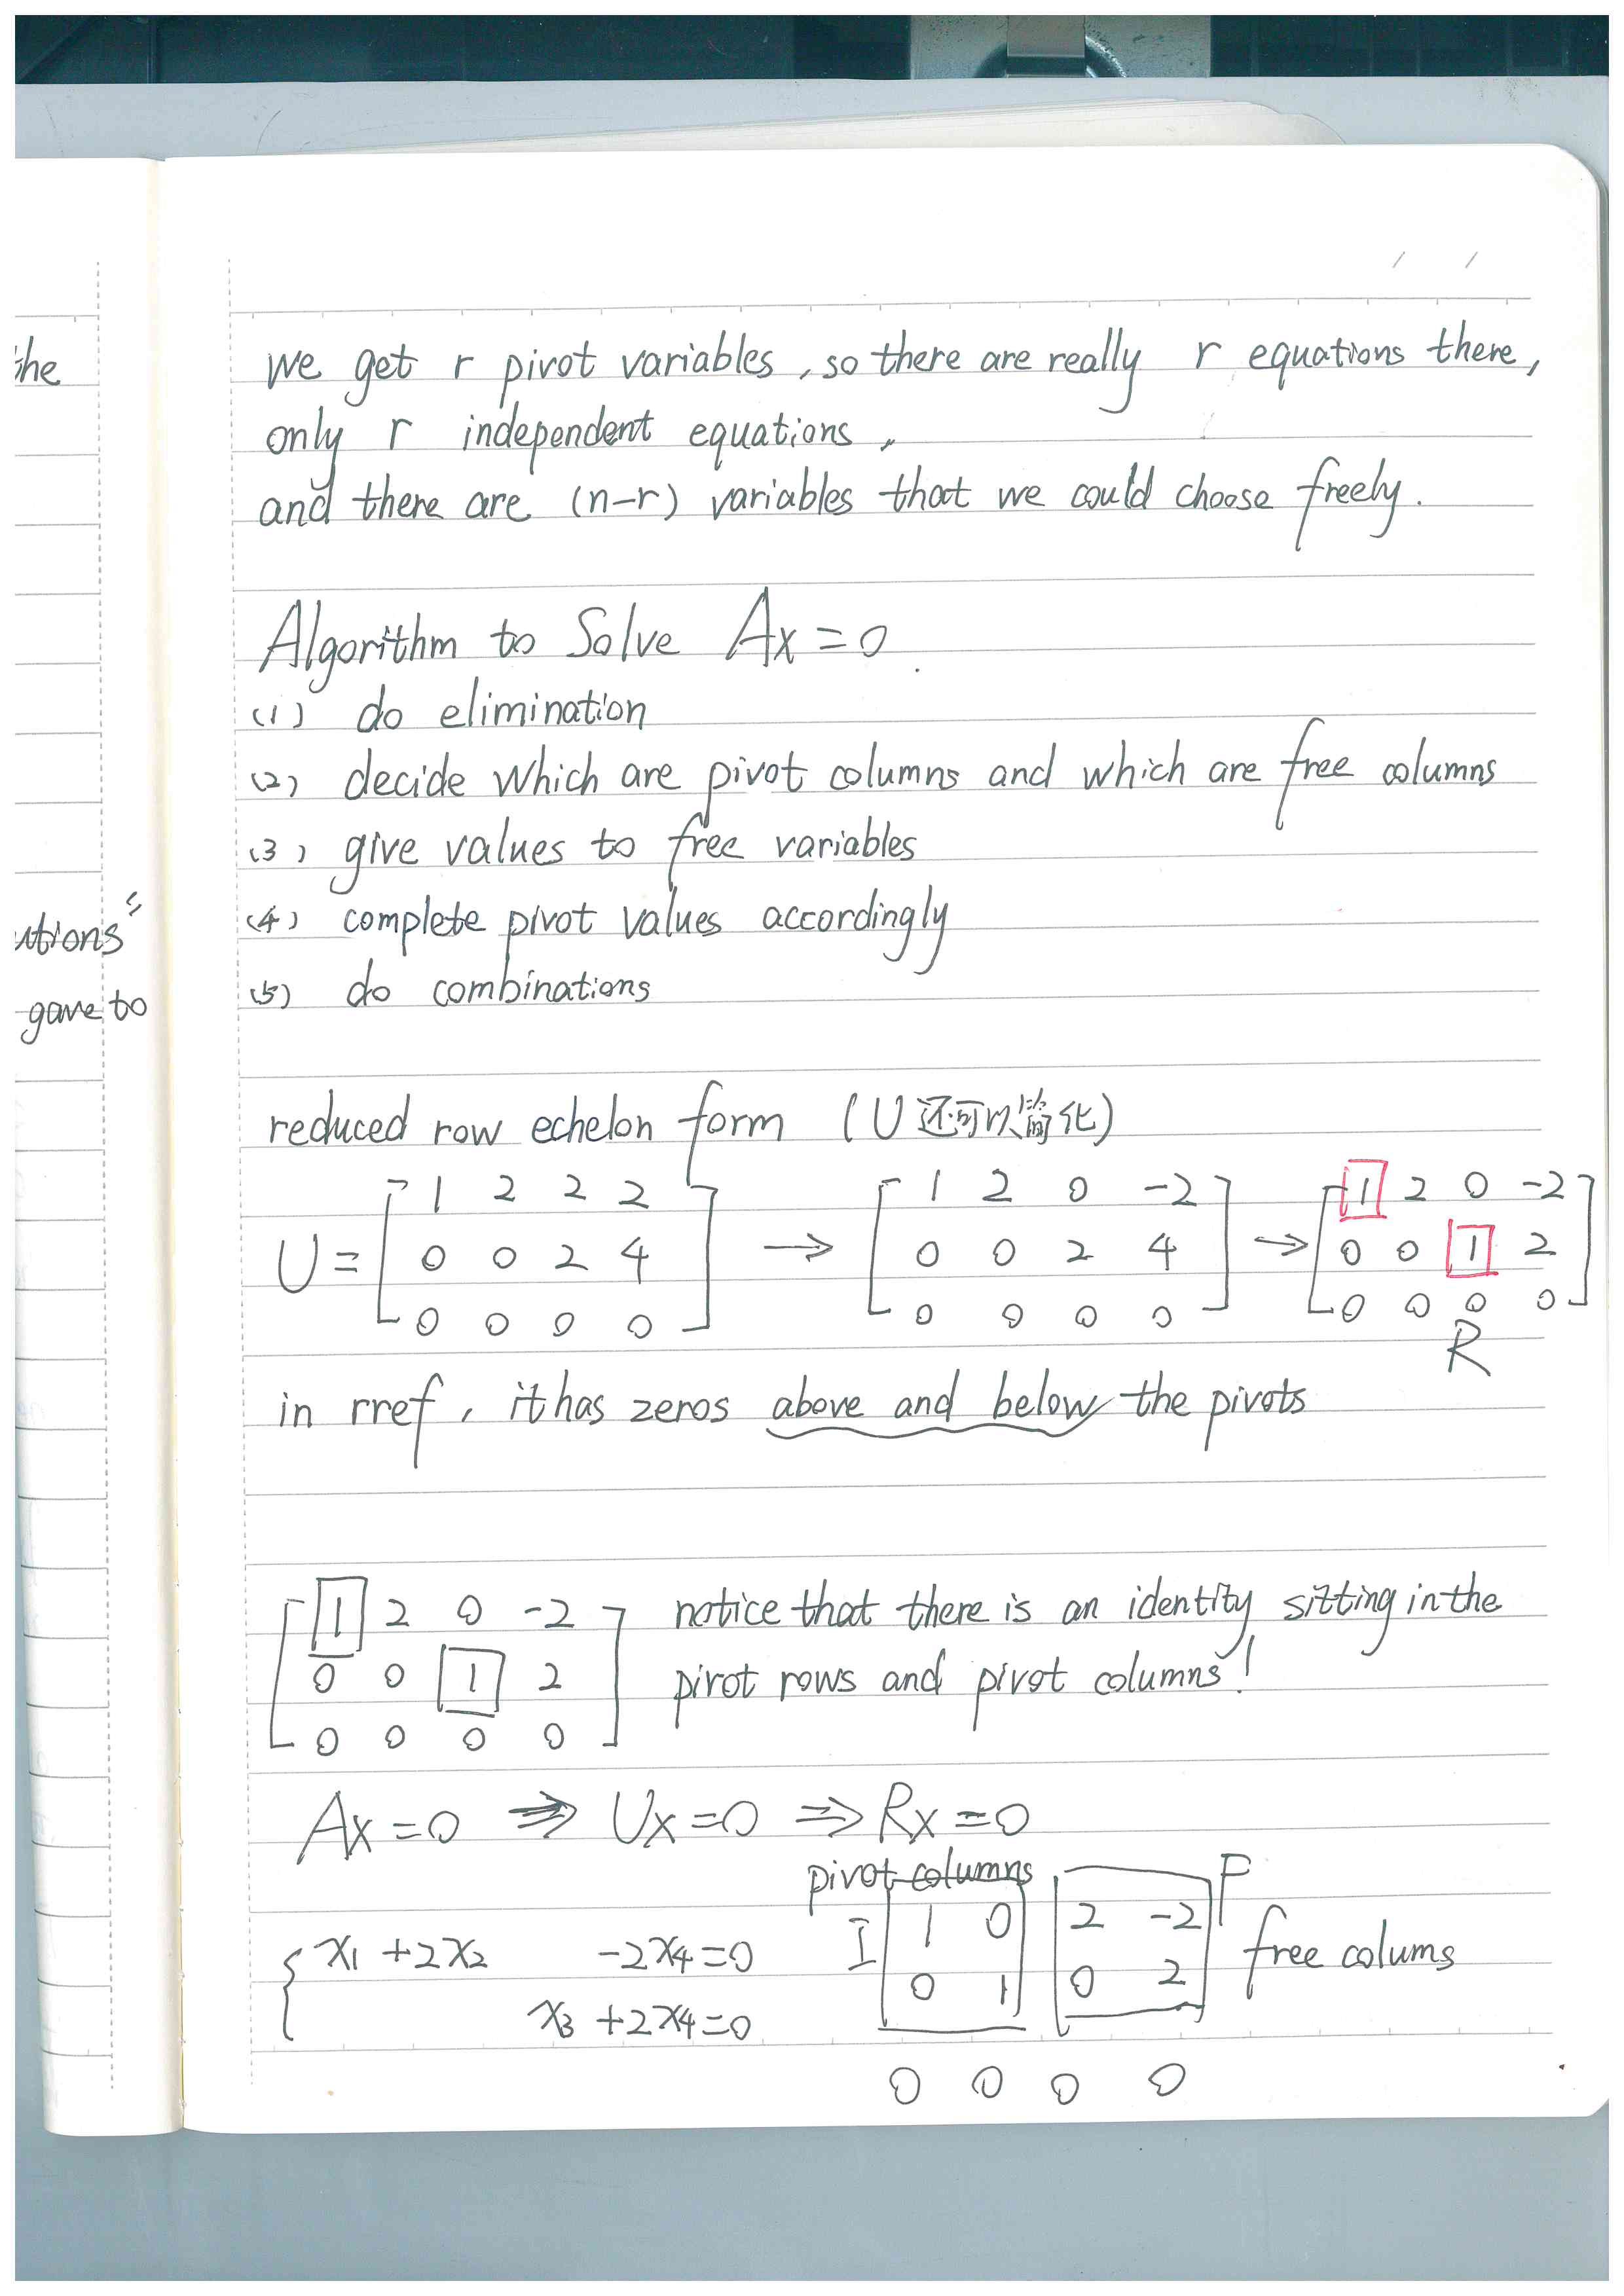 the
utions"
gave to
we get r pivot variables, so there are really r equations there,
only r independent equations,
and there are (n-r) variables that we could choose freely.
Algorithm to Solve Ax=0.
(1) do elimination
(2) decide which are pivot columns and which are free columns
(3) give values to free variables
(4) complete pivot values accordingly
(5) do combinations
reduced row echelon form (U还可以简化)
1 2 2 2 1 2 0 -2 1 2 0 -2
U= 0 0 2 4 → 0 0 2 4 → 0 0 1 2
0 0 0 0 0 0 0 0 0 0 0 0
R
in rref, it has zeros above and below the pivots
1 2 0 -2 notice that there is an identity sitting in the
0 0 1 2 pivot rows and pivot columns!
0 0 0 0
Ax=0 ⇒ Ux=0 ⇒ Rx=0
pivot columns F
x1 +2x2 -2x4=0 I 1 0 2 -2 free colums
x3 +2x4=0 0 1 0 2
0 0 0 0